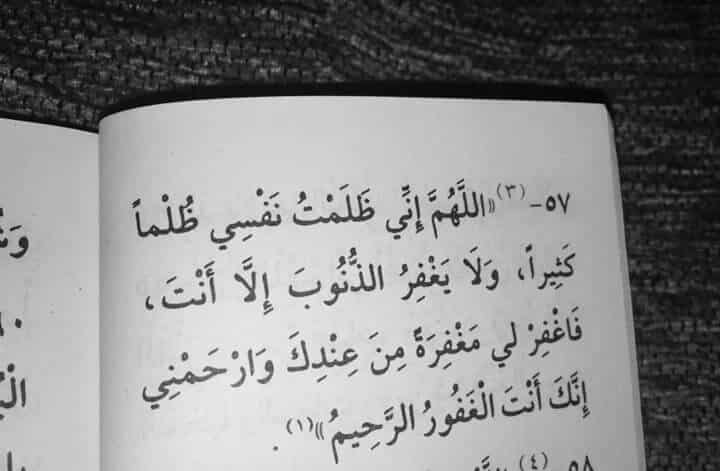 ٥٧-(٣)«اللَّهُمَّ إِنِّي ظَلَمْتُ نَفْسِي ظُلْماً
كَثِيراً، وَلَا يَغْفِرُ الذُّنُوبَ إِلَّا أَنْتَ،
فَاغْفِرْ لِي مَغْفِرَةً مِنَ عِنْدِكَ وَارْحَمْنِي
إِنَّكَ أَنْتَ الْغَفُورُ الرَّحِيمُ»(١).
٥٨-(٤)